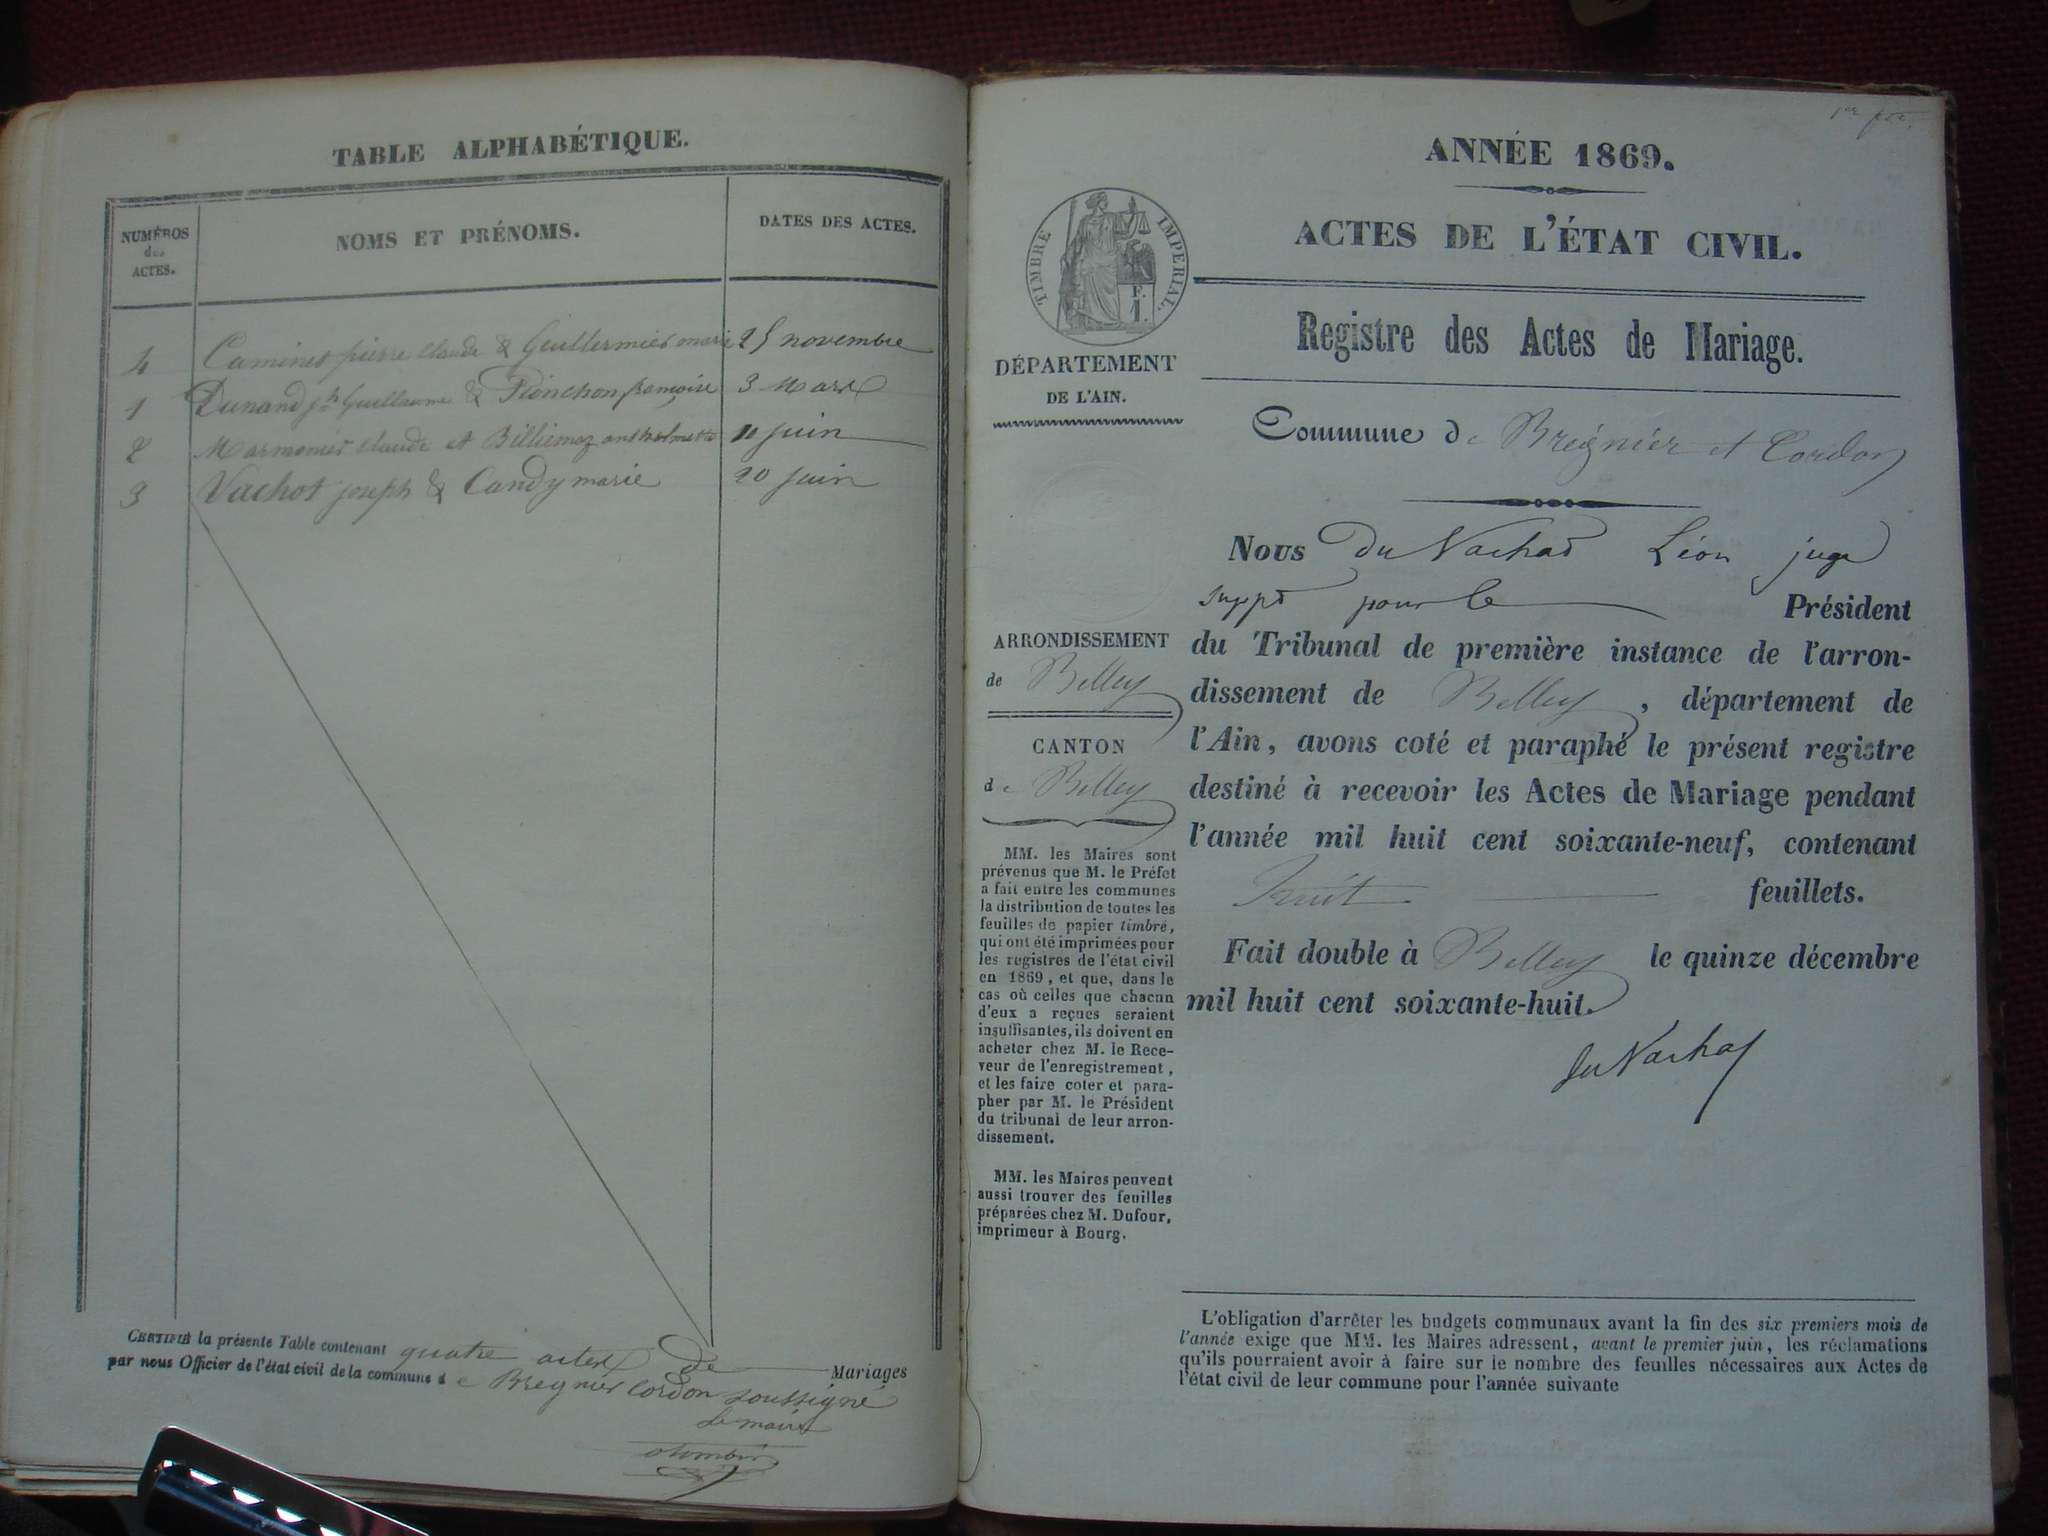 TABLE ALPHABÉTIQUE.
NUMÉROS
des
ACTES.
NOMS ET PRÉNOMS.
DATES DES ACTES.
4 Caminet pierre Claude & Guillermier marie 25 novembre
1 Dunand jh Guillaume & Plonchon françoise 3 Mars
2 Marmonier Claude et Billiemaz anthelmette 10 juin
3 Vachot joseph & Candy marie 20 juin
CERTIFIÉ la présente Table contenant quatre actes de Mariages
par nous Officier de l'état civil de la commune de Bregnier Cordon soussigné
Le maire
1er
ANNÉE 1869.
ACTES DE L'ÉTAT CIVIL.
TIMBRE IMPÉRIAL.
F.
1.
Registre des Actes de Mariage.
DÉPARTEMENT
DE L'AIN.
Commune de Bregnier et Cordon
Nous du Nachad Léon juge
suppt pour le Président
du Tribunal de première instance de l'arron-
dissement de Belley, département de
l'Ain, avons coté et paraphé le présent registre
destiné à recevoir les Actes de Mariage pendant
l'année mil huit cent soixante-neuf, contenant
huit feuillets.
Fait double à Belley le quinze décembre
mil huit cent soixante-huit.
ARRONDISSEMENT
de Belley
CANTON
de Belley
MM. les Maires sont
prévenus que M. le Préfet
a fait entre les communes
la distribution de toutes les
feuilles de papier timbré,
qui ont été imprimées pour
les registres de l'état civil
en 1869, et que, dans le
cas où celles que chacun
d'eux a reçues seraient
insuffisantes, ils doivent en
acheter chez M. le Rece-
veur de l'enregistrement,
et les faire coter et para-
pher par M. le Président
du tribunal de leur arron-
dissement.
MM. les Maires peuvent
aussi trouver des feuilles
préparées chez M. Dufour,
imprimeur à Bourg.
L'obligation d'arrêter les budgets communaux avant la fin des six premiers mois de
l'année exige que MM. les Maires adressent, avant le premier juin, les réclamations
qu'ils pourraient avoir à faire sur le nombre des feuilles nécessaires aux Actes de
l'état civil de leur commune pour l'année suivante